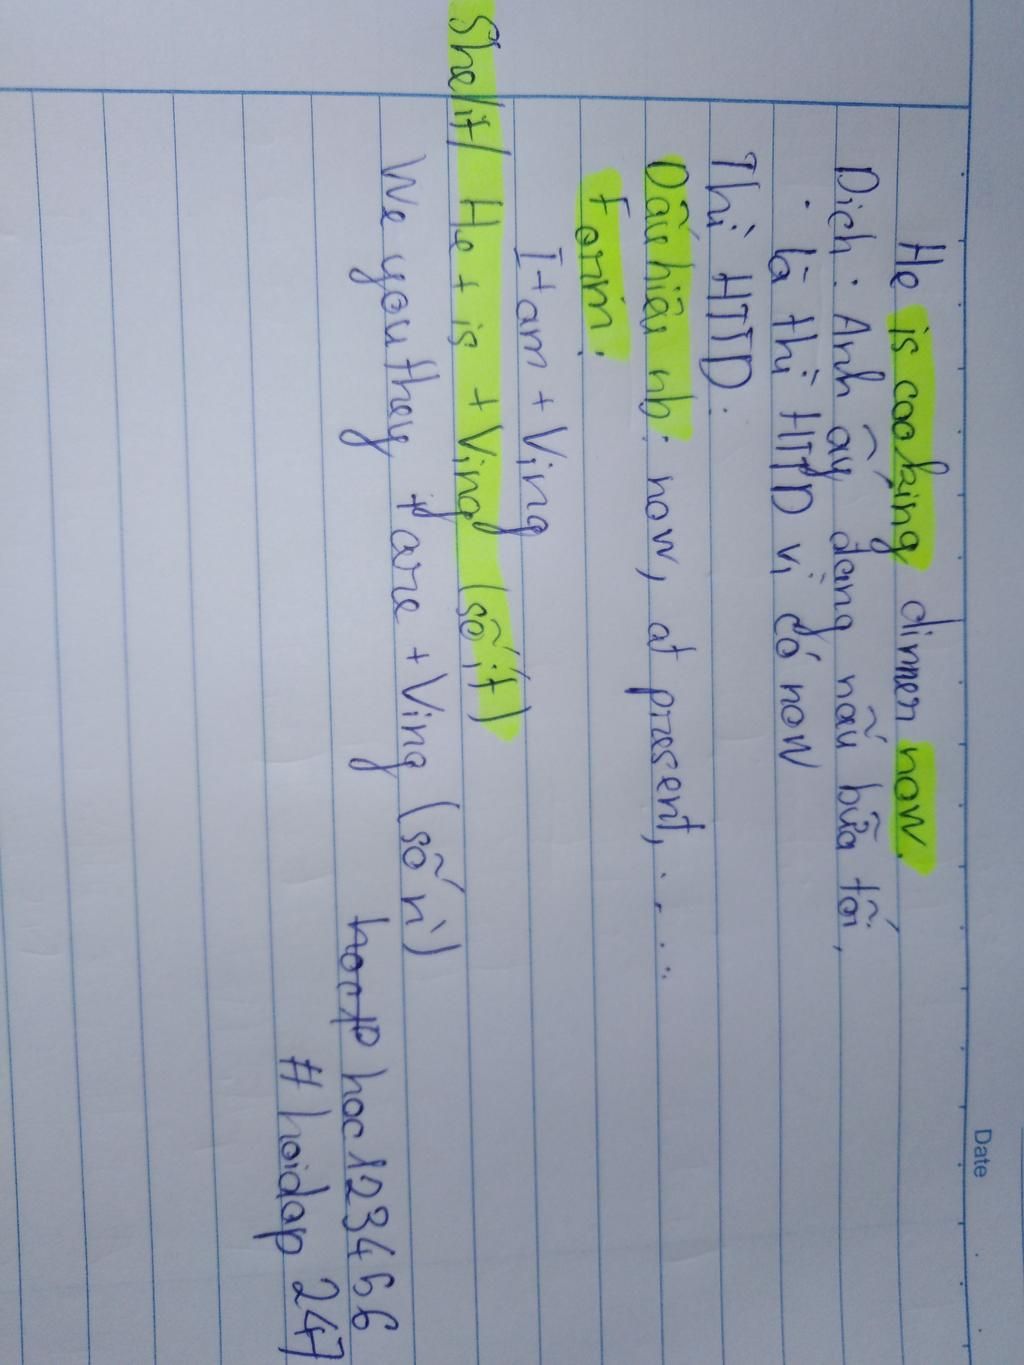 Date
He is cooking dinner now.
Dịch: Anh ấy đang nấu bữa tối,
là thì HTTD vì có now
Thì HTTD.
Dấu hiệu nb: now, at present,....
Form.
I + am + Ving
She/it/ He + is + Ving (số ít)
We you they + are + Ving (số n')
hoc123456
# hoidap 247